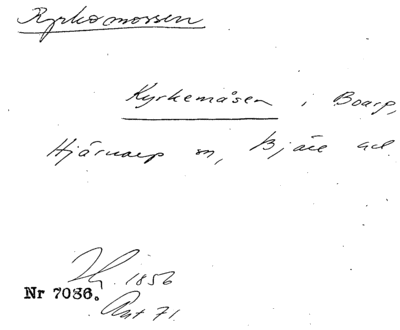 Kyrkomossen
Kyrkemåsen i Boarp,
Hjärnarp sn, Bjäre hd.
1856
Nr 7086.
Ant 71.